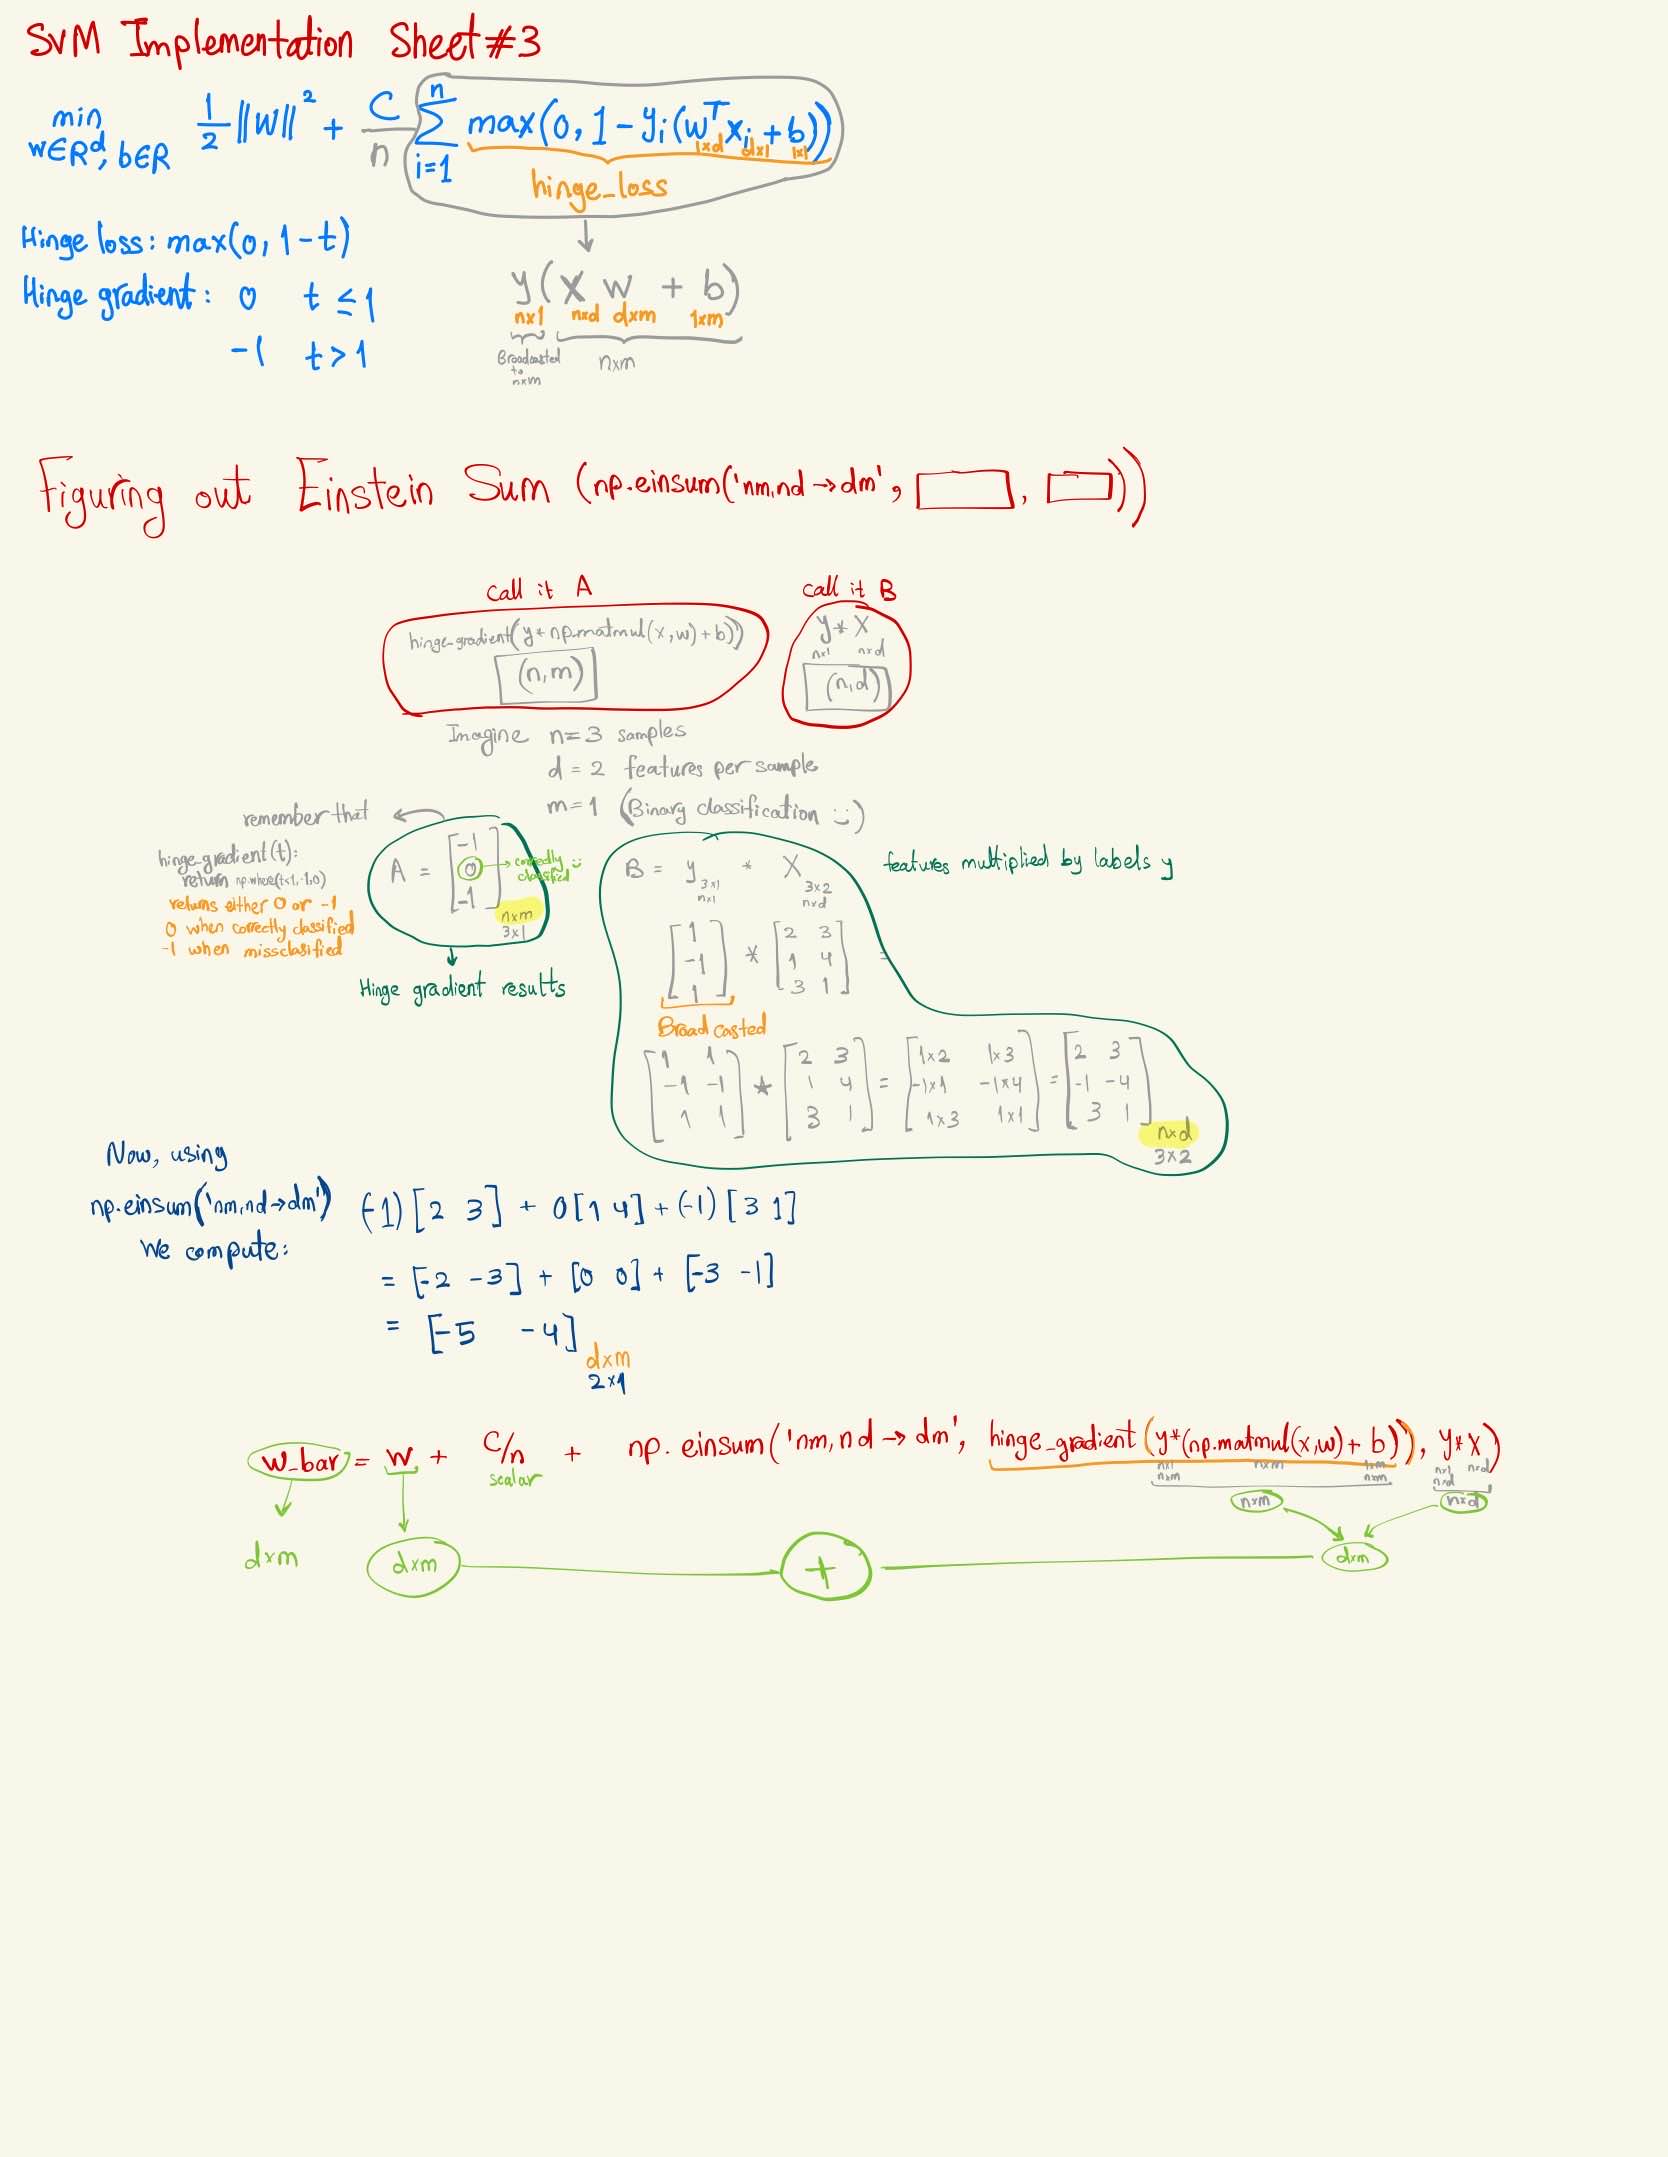 SVM Implementation Sheet #3
min w∈R^d, b∈R 1/2 ||W||² + C/n Σ i=1 n max(0, 1 - yᵢ(wᵀxᵢ + b))
1xd dx1 1x1
hinge_loss
Hinge loss: max(0, 1-t)
Hinge gradient: 0 t ≤ 1
-1 t > 1
y(X w + b)
nx1 nxd dxm 1xm
Broadcasted to nxm
nxm
Figuring out Einstein Sum (np.einsum('nm,nd→dm', , ))
call it A
call it B
hinge_gradient(y* np.matmul(x,w)+b))
(n,m)
y * X
nx1 nxd
(n,d)
Imagine n=3 samples
d = 2 features per sample
m=1 (Binary classification :))
remember that
hinge_gradient(t):
return np.where(t<1,-1,0)
returns either 0 or -1
0 when correctly classified
-1 when missclasified
A = [-1 0 -1]
→ correctly classified :)
nxm
3x1
Hinge gradient results
B = y * X
3x1 3x2
nx1 nxd
features multiplied by labels y
[1 -1 1] * [2 3 1 4 3 1] =
Broadcasted
[1 1 -1 -1 1 1] * [2 3 1 4 3 1] = [1x2 1x3 -1x1 -1x4 1x3 1x1] = [2 3 -1 -4 3 1]
nxd
3x2
Now, using
np.einsum('nm,nd→dm')
We compute:
(-1) [2 3] + 0[1 4] + (-1) [3 1]
= [-2 -3] + [0 0] + [-3 -1]
= [-5 -4]
dxm
2x1
w_bar = w + C/n + np.einsum('nm,nd→dm', hinge_gradient(y*(np.matmul(x,w)+b)), y*X)
scalar
nx1 nxm 1xm nx1 nxd
nxm nxm nxd
nxm nxd
dxm dxm + dxm